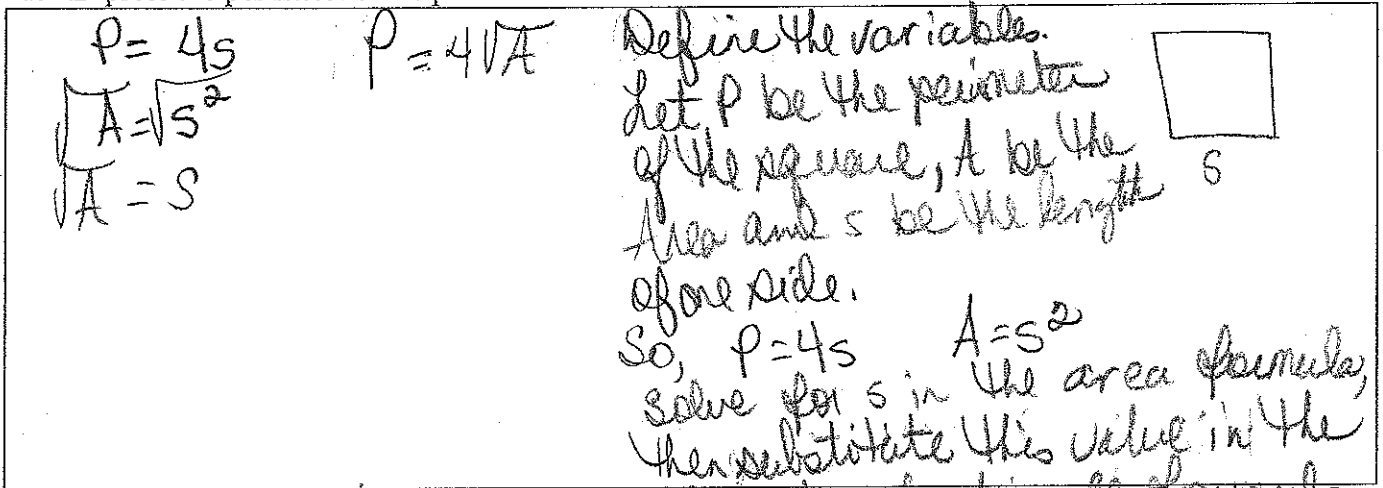 P = 4s
√A = √s²
√A = s
P = 4√A
Define the variables.
Let P be the perimeter
of the square, A be the
Area and s be the length
of one side.
So, P = 4s A = s²
Solve for s in the area formula,
then substitute this value in the
s